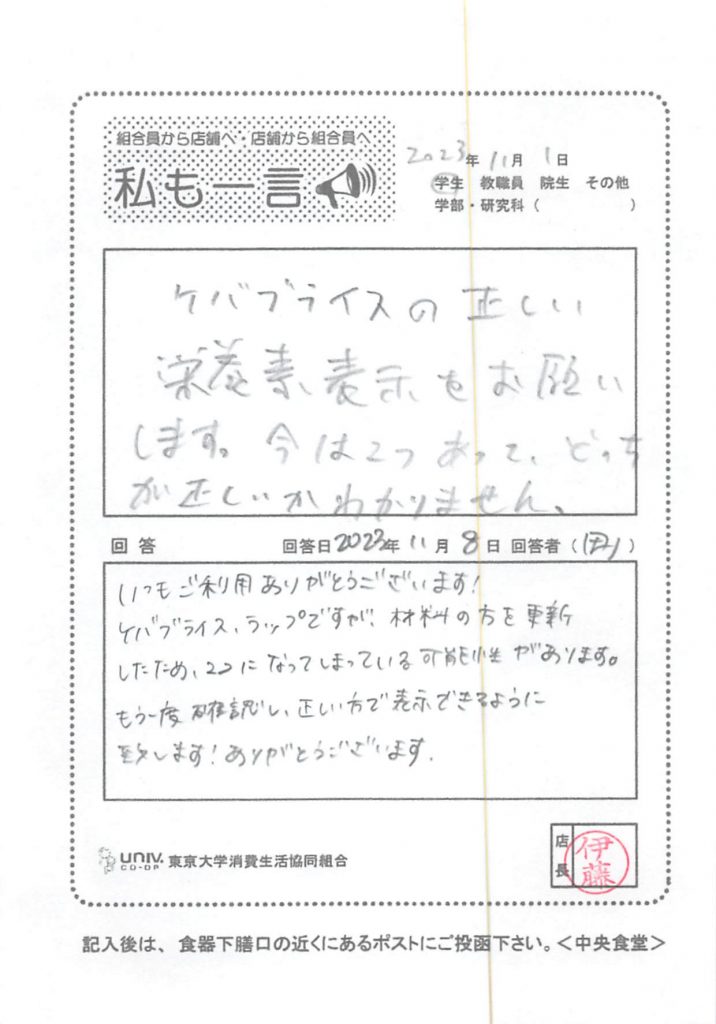 組合員から店舗へ・店舗から組合員へ
私も一言
2023年 11月 1日
学生 教職員 院生 その他
学部・研究科（ ）
ケバブライスの正しい
栄養素表示をお願い
します。今は2つあって、どっち
が正しいかわかりません。
回答 回答日2023年 11月 8日 回答者（ ）
いつもご利用ありがとうございます!
ケバブライス、ラップですが、材料の方を更新
したため、2つになってしまっている可能性があります。
もう一度確認し、正しい方で表示できるように
致します!ありがとうございます.
UNIV. CO-OP 東京大学消費生活協同組合
店長 伊藤
記入後は、食器下膳口の近くにあるポストにご投函下さい。＜中央食堂＞